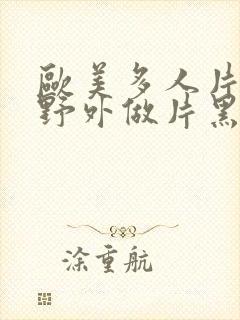 歐美多人片
野外做片黑
涂重航